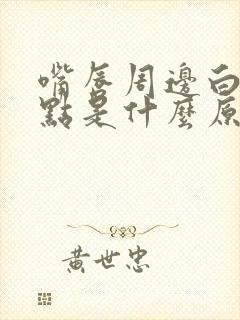 嘴唇周邊白
點是什麼原
黃世忠